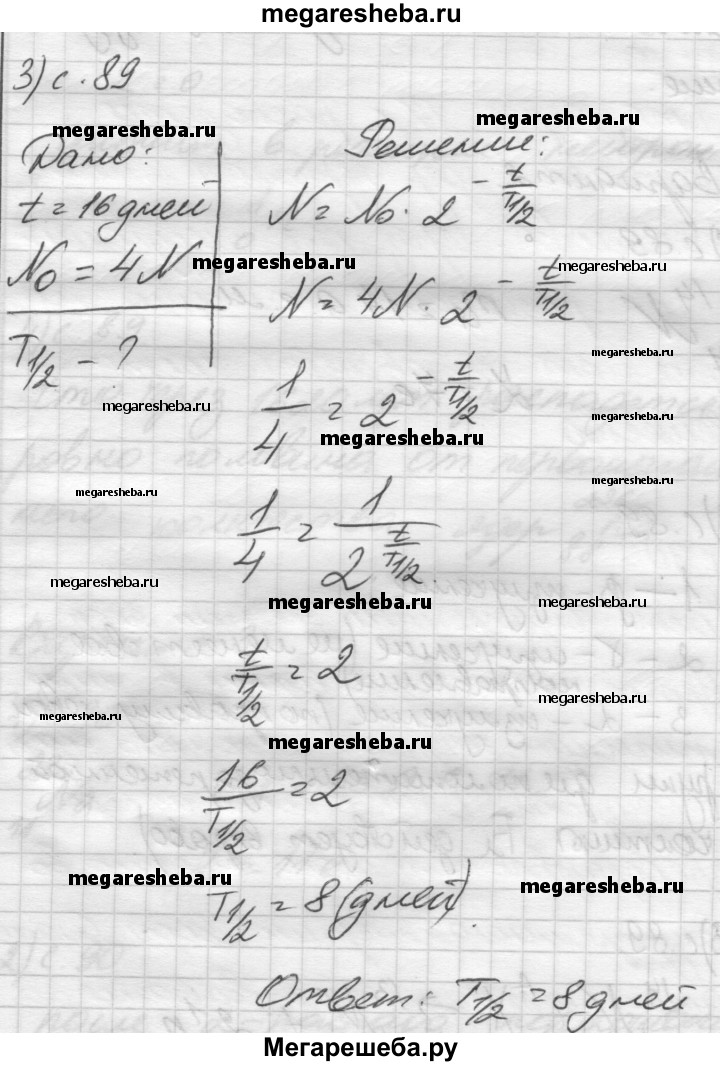 megaresheba.ru
3) с. 89
megaresheba.ru
megaresheba.ru
Дано:
Решение:
t = 16 дней
N = N₀ · 2^(-t/T1/2)
N₀ = 4N
megaresheba.ru
megaresheba.ru
N = 4N · 2^(-t/T1/2)
T1/2 - ?
megaresheba.ru
1/4 = 2^(-t/T1/2)
megaresheba.ru
megaresheba.ru
megaresheba.ru
megaresheba.ru
megaresheba.ru
1/4 = 1/2^(t/T1/2)
megaresheba.ru
megaresheba.ru
megaresheba.ru
t/T1/2 = 2
megaresheba.ru
megaresheba.ru
megaresheba.ru
16/T1/2 = 2
megaresheba.ru
megaresheba.ru
T1/2 = 8 (дней).
Ответ: T1/2 = 8 дней
Мегарешеба.ру